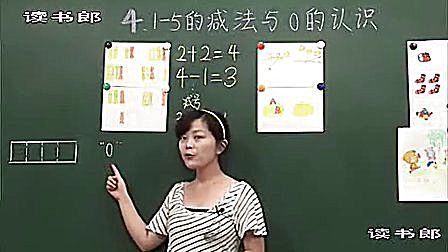 读书郎
4.1-5的减法与0的认识
2+2=4
4-1=3
减号
"0"
读书郎